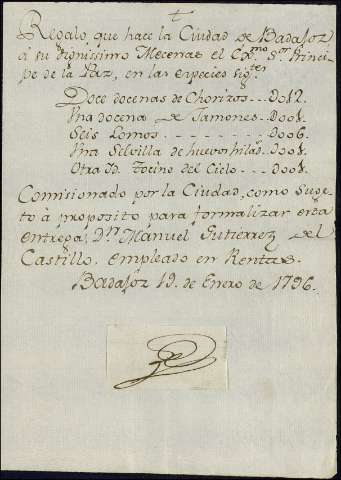 Regalo que hace la Ciudad de Badajoz
á su dignissimo Mecenas el Exmo. Sor. Princi-
pe de la Paz, en las especies sigtes
Doce docenas de Chorizos --- D012.
Una docena de Jamones -- D001.
Seis Lomos -------- D006.
Una Selvilla de huevos hilads. D001.
Otra Id. tocino del Cielo --- D001.
Comisionado por la Ciudad, como Suge-
to á proposito para formalizar esta
entrega, Dn. Manuel Gutierrez del
Castillo. empleado en Rentas.
Badajoz 19. de Enero de 1796.